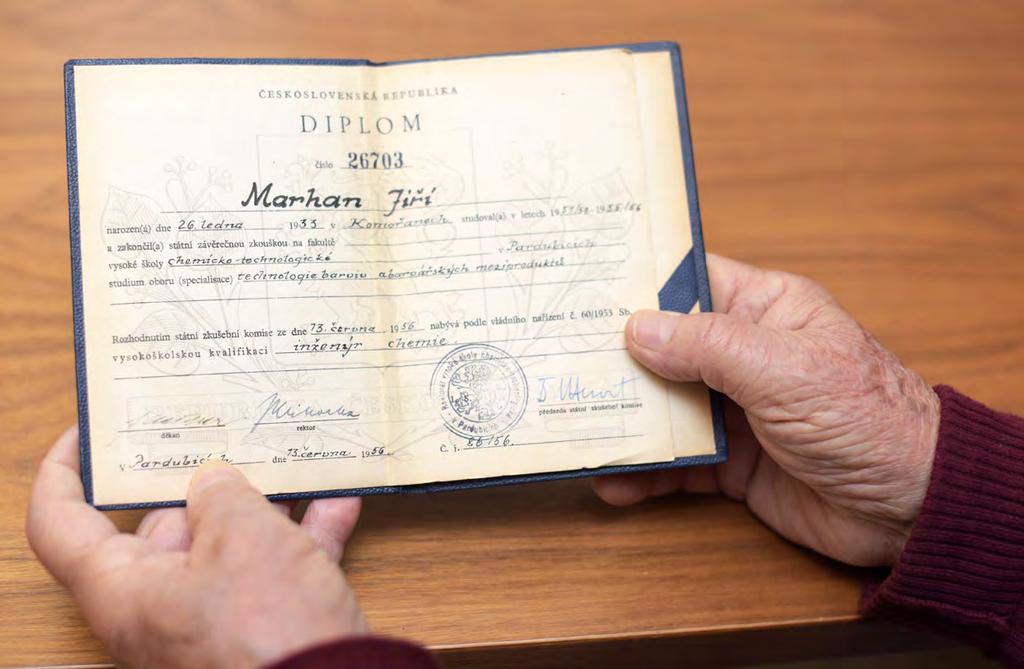 ČESKOSLOVENSKÁ REPUBLIKA
DIPLOM
číslo 26703
Marhan Jiří
narozen(á) dne 26. ledna 1933 v Komořanech studoval(a) v letech 1951/52 - 1955/56
a zakončil(a) státní závěrečnou zkouškou na fakultě
vysoké školy chemicko-technologické v Pardubicích
studium oboru (specialisace) technologie barviv a barvářských meziproduktů
Rozhodnutím státní zkušební komise ze dne 13. června 1956 nabývá podle vládního nařízení č. 60/1953 Sb.
vysokoškolskou kvalifikaci inženýr chemie.
děkan rektor předseda státní zkušební komise
v Pardubicích dne 13. června 1956 Č. j. 86/56.
Rektorát vysoké školy chemické v Pardubicích